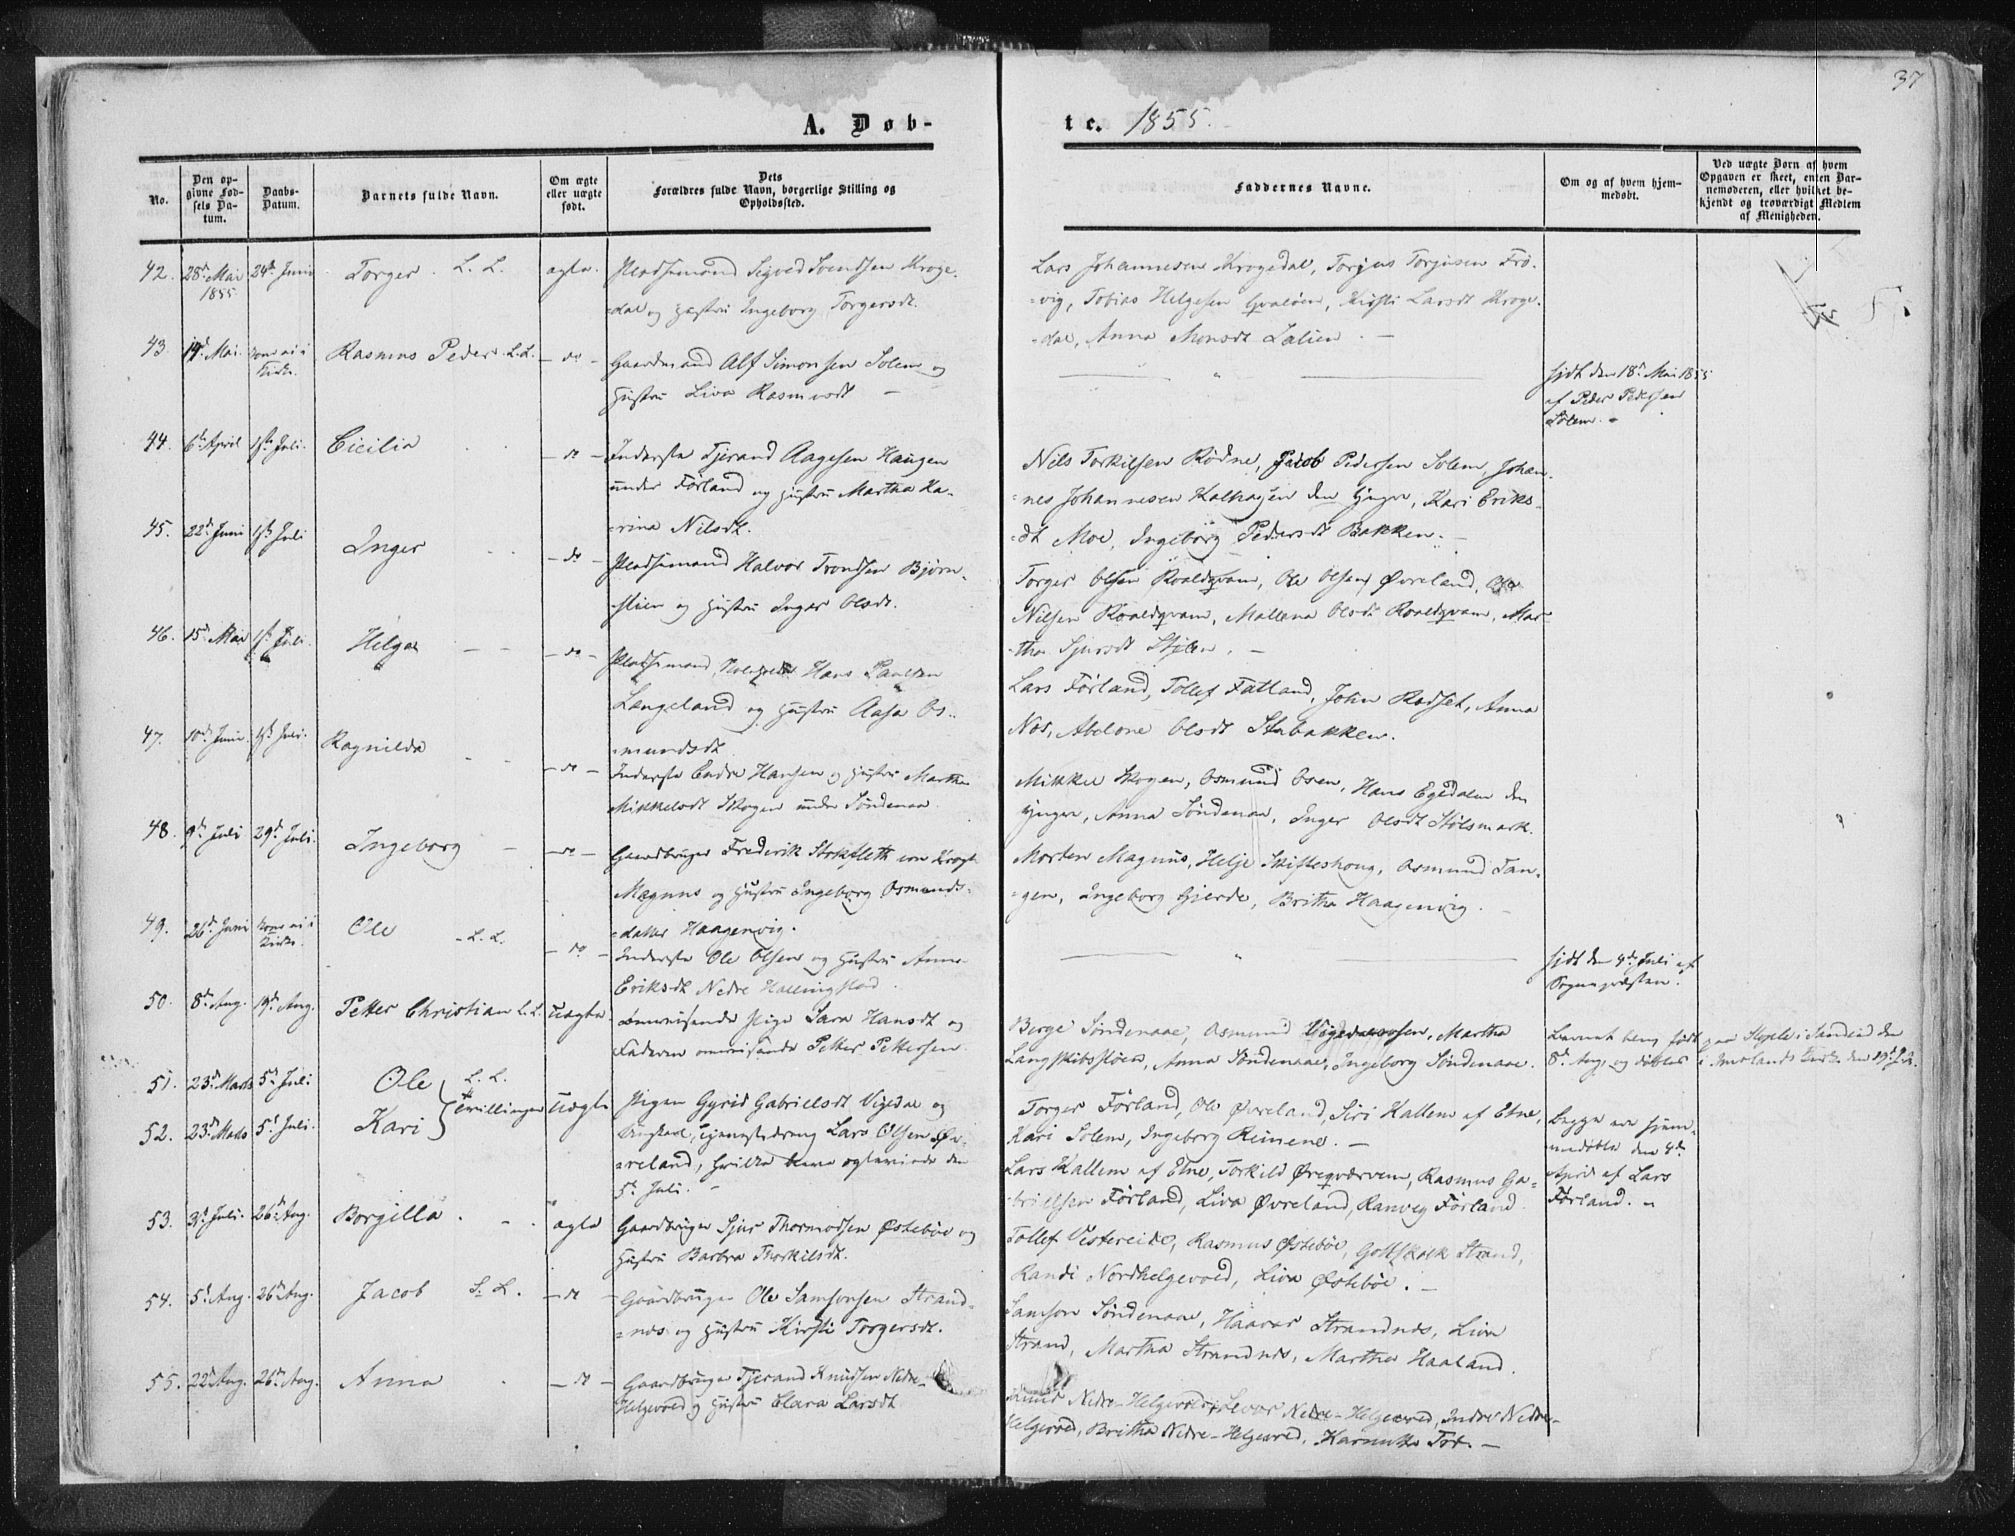 37
A. Døb-
te. 1855.
No.
Den op-
givne Fød-
sels Da-
tum.
Daabs-
Datum.
Barnets fulde Navn.
Om ægte
eller uægte
født.
Dets
Forældres fulde Navn, borgerlige Stilling og
Opholdssted.
Faddernes Navne.
Om og af hvem hjem-
medøbt.
Ved uægte Børn af hvem
Opgaven er skeet, enten Bar-
nemoderen, eller hvilket be-
kjendt og troværdigt Medlem
af Menigheden.
42. 28de Mai 1855 24de Juni Torger. L. L. ægte. Pladsemand Sigved Svendsen Kroge-
dal og Hustru Ingeborg Torgersdt.
Lars Johannesen Krogedal, Torjus Torjusen Frø-
vig, Tobias Helgesen Hvaløen, Kirsti Larsdt Kroge-
dal, Anna Monsdt Lalien. —
43. 14de Mai Rasmus Peder. L. L. — do — Gaardmand Alf Simonsen Solem og
Hustru Liva Rasmusdt —
hjdt den 18de Mai 1855
af Peder Pedersen
Solem. —
44. 6te April 1ste Juli. Cicilia — do — Inderste Tjerand Aagesen Haugen
under Førland og Hustru Martha Ka-
rina Nilsdt.
Nils Torkilsen Rødne, Jacob Pedersen Solem, Johan-
nes Johannesen Kalhagen den yngre, Kari Eriks-
dt Moe, Ingeborg Pedersdt Bakken. —
45. 22de Juni 1ste Juli Inger — do — Pladsemand Halvor Trondsen Bjørn-
stien og Hustru Inger Olsdt.
Torger Olsen Roaldqvam, Ole Olsen Øvreland, Ole
Nilsen Roaldqvam, Mallena Olsdt Roaldqvam, Mar-
tha Sjursdt Stølen. —
46. 15de Mai 1ste Juli. Helga — do — Pladsemand Hans Paulsen
Langeland og Hustru Aasa Os-
mundsdt
Lars Førland, Tollef Fatland, John Rødset, Anna
Nos, Abelone Olsdt Stabakken.
47. 10de Juni 1ste Juli. Ragnilda — do — Inderste Endre Hansen og Hustru Martha
Mikkelsdt Skogen under Søndenaa.
Mikkel Skogen, Osmund Osen, Hans Egedalen den
yngre, Anna Søndenaa, Inger Olsdt Stølsmark.
48. 9de Juli 29de Juli. Ingeborg — do — Gaardbruger Frederik Stokfleth von Krogh
Magnus og Hustru Ingeborg Osmunds-
datter Haagenvig.
Morten Magnus, Helje Skifteshoug, Osmund Tan-
gen, Ingeborg Gjerde, Britha Haagenvig. —
49. 26de Juni Ole L. L. — do — Inderste Ole Olsen og Hustru Anna
Eriksdt Nedre Hallingstad.
hjdt den 4de Juli af
Sognepræsten.
50. 8de Aug. 19de Aug. Petter Christian L. L. uægte. omreisende Pige Sara Hansdt og
Faderen omreisende Petter Pettersen.
Berge Søndenaae, Osmund Vigedalsosen, Martha
Langskibsfloen, Anna Søndenaae, Ingeborg Søndenaae.
Barnet blev født paa Stople i Sandeid den
8de Aug. og døbtes i Imslands Kirke den 19de
51. 23de Marts 5te Juli Ole L. L.
52. 23de Marts 5te Juli. Kari Tvillinger uægte Pigen Gyrid Gabrielsdt Vigedal og
Ungkarl, Tjenestedreng Lars Olsen Øv-
reland, hvilke bleve ægteviede den
5te Juli. —
Torger Førland, Ole Øvreland, Siri Kallem af Etne,
Kari Solem, Ingeborg Reimene. —
Lars Kallem af Etne, Torkild Øreqværven, Rasmus Ga-
brielsen Førland, Liva Øvreland, Ranveg Førland
Begge ere hjem-
medøbte den 4de
April af Lars
Førland. —
53. 3de Juli. 26de Aug. Borgilla. ægte Gaardbruger Sjur Thormodsen Østebøe og
Hustru Barbra Thorkilsdt.
Tollef Vestereide, Rasmus Østebøe, Gottskalk Strand,
Randi Nordhelgevold, Liva Østebøe. —
54. 5te Aug. 26de Aug. Jacob L. L. — do — Gaardbruger Ole Samsonsen Strand-
næs og Hustru Kirsti Torgersdt.
Samson Søndenaae, Haavar Strandnæs, Liva
Strand, Martha Strandnæs, Martha Haaland.
55. 22de Aug. 26de Aug. Anna — do — Gaardbruger Tjerand Knudsen Nedre-
Helgevold og Hustru Clara Larsdt
Knud Nedre-Helgevold, Sevor Nedre-Helgevold, Endre Nedre-
Helgevold, Britha Nedre-Helgevold, —